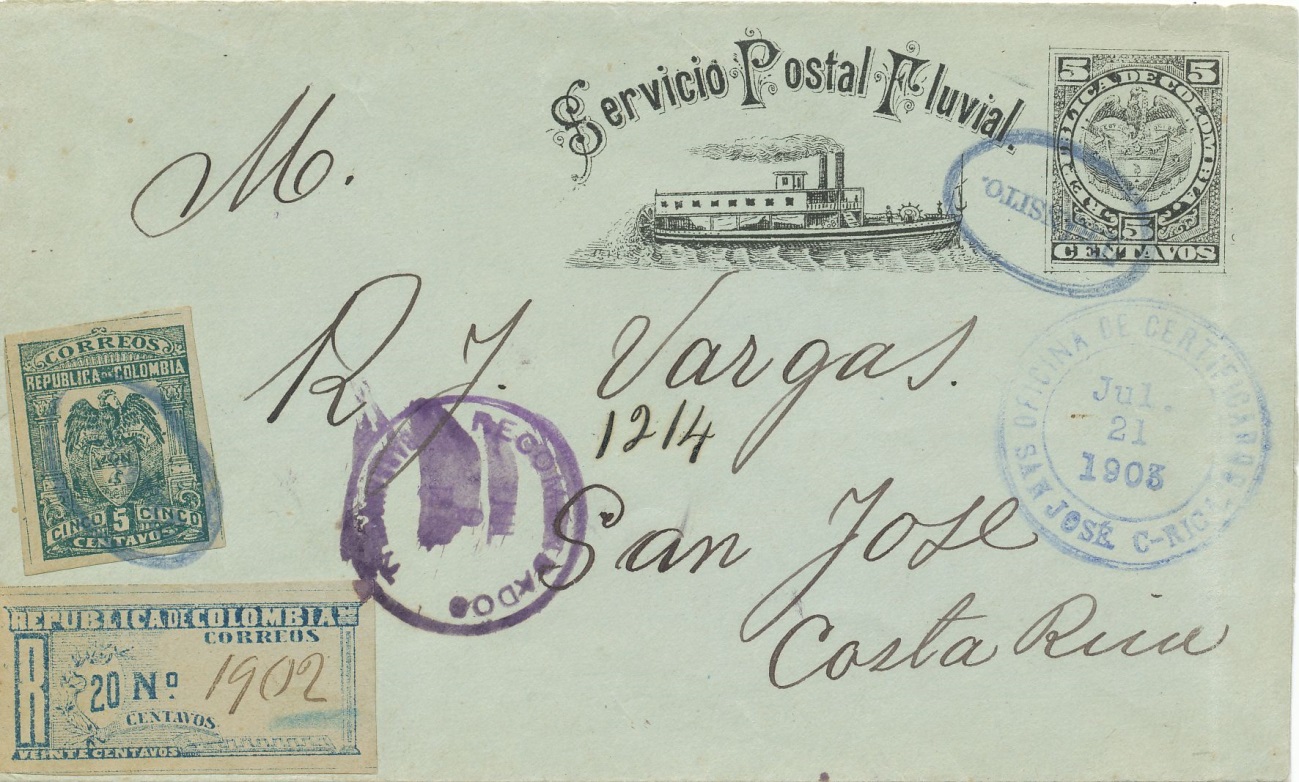 Servicio Postal Fluvial.
5 5
REPUBLICA DE COLOMBIA.
5
CENTAVOS
M.
R. J. Vargas.
1214
San Jose
Costa Rica
CORREOS
REPUBLICA DE COLOMBIA
CINCO 5 CINCO
CENTAVOS
OFICINA DE CERTIFICADOS
Jul.
21
1903
SAN JOSÉ C-RICA
RECOMENDADOS
REPUBLICA DE COLOMBIA
CORREOS
R
20 Nº 1902
CENTAVOS
VEINTE CENTAVOS